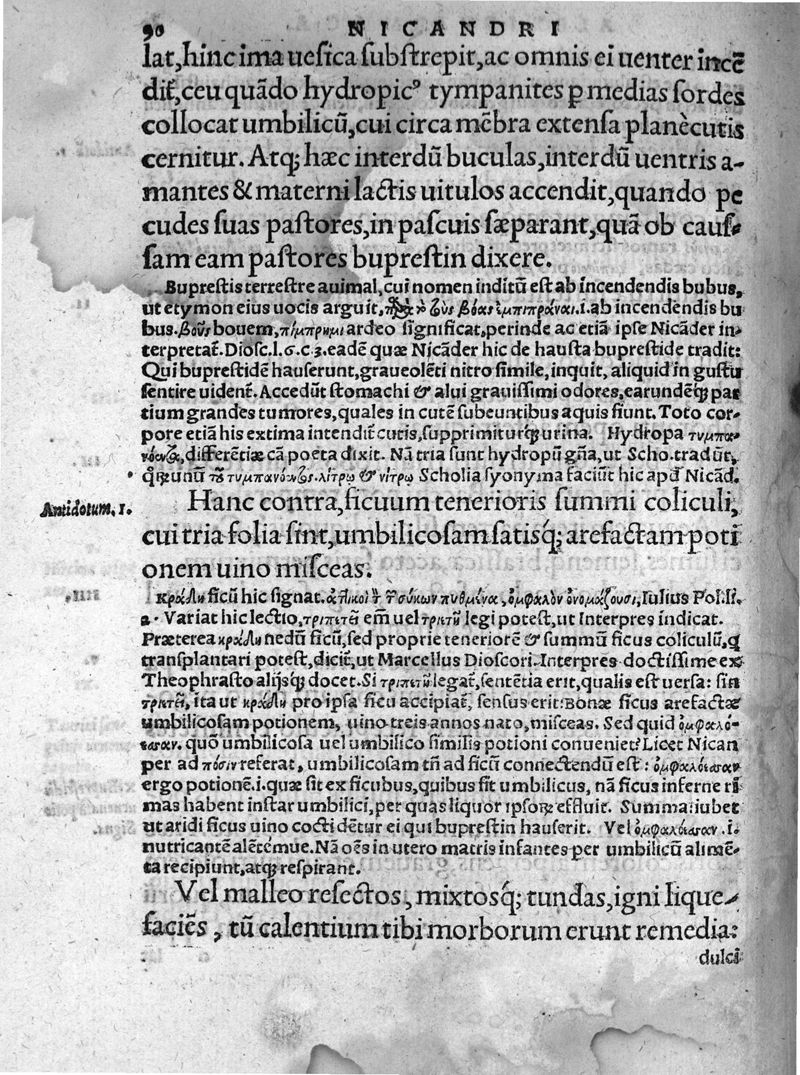 90 NICANDRI
lat, hinc ima uesica substrepit, ac omnis ei uenter incẽ
dit᷒, ceu quãdo hydropicꝰ tympanites ꝑ medias sordes
collocat umbilicũ, cui circa mẽbra extensa planè cutis
cernitur. Atq; hæc interdũ buculas, interdũ uentris a-
mantes & materni lactis uitulos accendit, quando pe
cudes suas pastores, in pascuis sæparant, quã ob caus-
sam eam pastores buprestin dixere.
Buprestis terrestre auimal, cui nomen inditũ est ab incendendis bubus,
ut etymon eius uocis arguit, βόας ἐμπιπράναι .i. ab incendendis bu
bus. βοῦς bouem, πίμπρημι ardeo significat, perinde ac etiã ipse Nicãder in-
terpretat᷒. Diosc. l. 6. c. 3. eadẽ quæ Nicãder hic de hausta buprestide tradit:
Qui buprestidẽ hauserunt, graueolẽti nitro simile, inquit, aliquid in gustu
sentire uident᷒. Accedũt stomachi & alui grauissimi odores, earundẽq́ꝫ par
tium grandes tumores, quales in cutẽ subeuntibus aquis fiunt. Toto cor-
pore etiã his extima intendit᷒ cutis, supprimiturq́ꝫ urina. Hydropa τυμπα-
differẽtiæ cã poeta dixit. Nã tria sunt hydropũ gña, ut Scho. tradũt,
unũ λίτρῳ & νίτρῳ Scholia syonyma faciũt hic apđ Nicãd.
Antidotum. 1. Hanc contra, ficuum tenerioris summi coliculi,
cui tria folia sint, umbilicosam satisq́; arefactam poti
onem uino misceas.
IIII. κράδη ficũ hic signat. ὀμφαλὸν ὀνομάζουσι, Iulius Pol. li.
a. Variat hic lectio, τριπετεῖ em̃ uel τριετεῖ legi potest, ut Interpres indicat.
Præterea κράδη nedũ ficũ, sed proprie teneriorẽ & summũ ficus coliculũ, q
transplantari potest, dicit᷒, ut Marcellus Dioscori. Interpres doctissime ex
Theophrasto alijsq́ꝫ docet. Si legat᷒, sentẽtia erit, qualis est uersa: sin
τριετεῖ, ita ut κράδη pro ipsa ficu accipiat᷒, sensus erit: Bonæ ficus arefactæ
umbilicosam potionem, uino treis annos nato, misceas. Sed quid ὀμφαλό-
εσσαν. quõ umbilicosa uel umbilico similis potioni conueniet? Licet Nican
per ad πόσιν referat, umbilicosam tñ ad ficũ connectendũ est: ὀμφαλόεσσαν
ergo potionẽ .i. quæ sit ex ficubus, quibus sit umbilicus, nã ficus inferne ri
mas habent instar umbilici, per quas liquor ipsoꝝ effluit. Summa: iubet
ut aridi ficus uino cocti dẽtur ei qui buprestin hauserit. Vel ὀμφαλόεσσαν .i.
nutricantẽ alẽtẽmue. Nã oẽs in utero matris infantes per umbilicũ alimẽ-
ta recipiunt, atq́ꝫ respirant.
Vel malleo resectos, mixtosq́; tundas, igni lique-
faciẽs, tũ calentium tibi morborum erunt remedia:
dulci